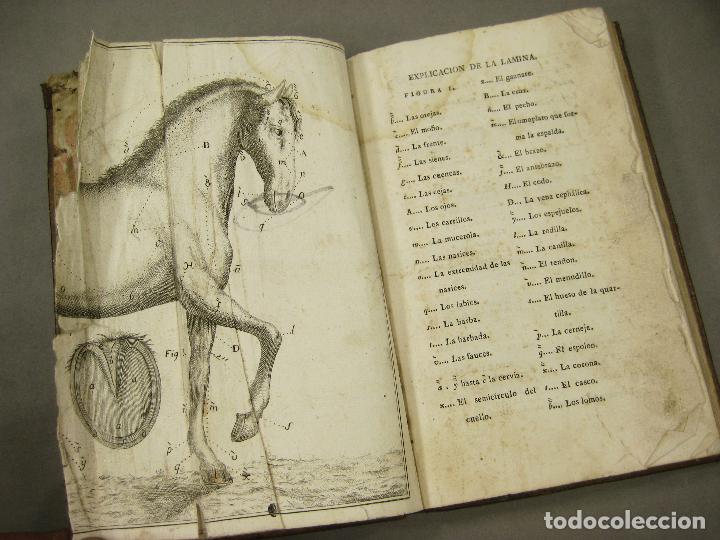 EXPLICACION DE LA LAMINA.
FIGURA I.
Las orejas.
El moño.
La frente.
Las sienes.
Las cuencas.
Las cejas.
A.... Los ojos.
Los carrillos.
La mucerola.
Las narices.
La extremidad de las
narices.
Los labios.
La barba.
La barbada.
Las fauces.
y hasta c la cervíz.
x.... El semicirculo del
cuello.
z.... El gaznate.
B.... La cruz.
El pecho.
El omoplato que for-
ma la espalda.
El brazo.
El antebrazo.
H.... El codo.
D.... La vena cephálica.
Los espejuelos.
La rodilla.
La canilla.
El tendon.
El menudillo.
El hueso de la quar-
tilla.
La cerneja.
El espolon.
La corona.
El casco.
Los lomos.
Fig
D
D
H
A
todocoleccion.net